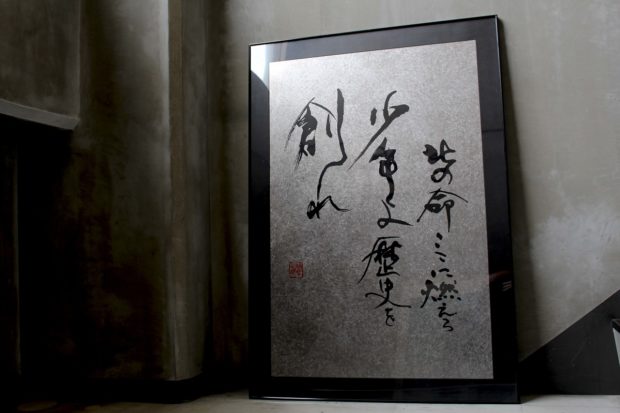 此の命ここに燃えろ
少年よ歴史を
創れ